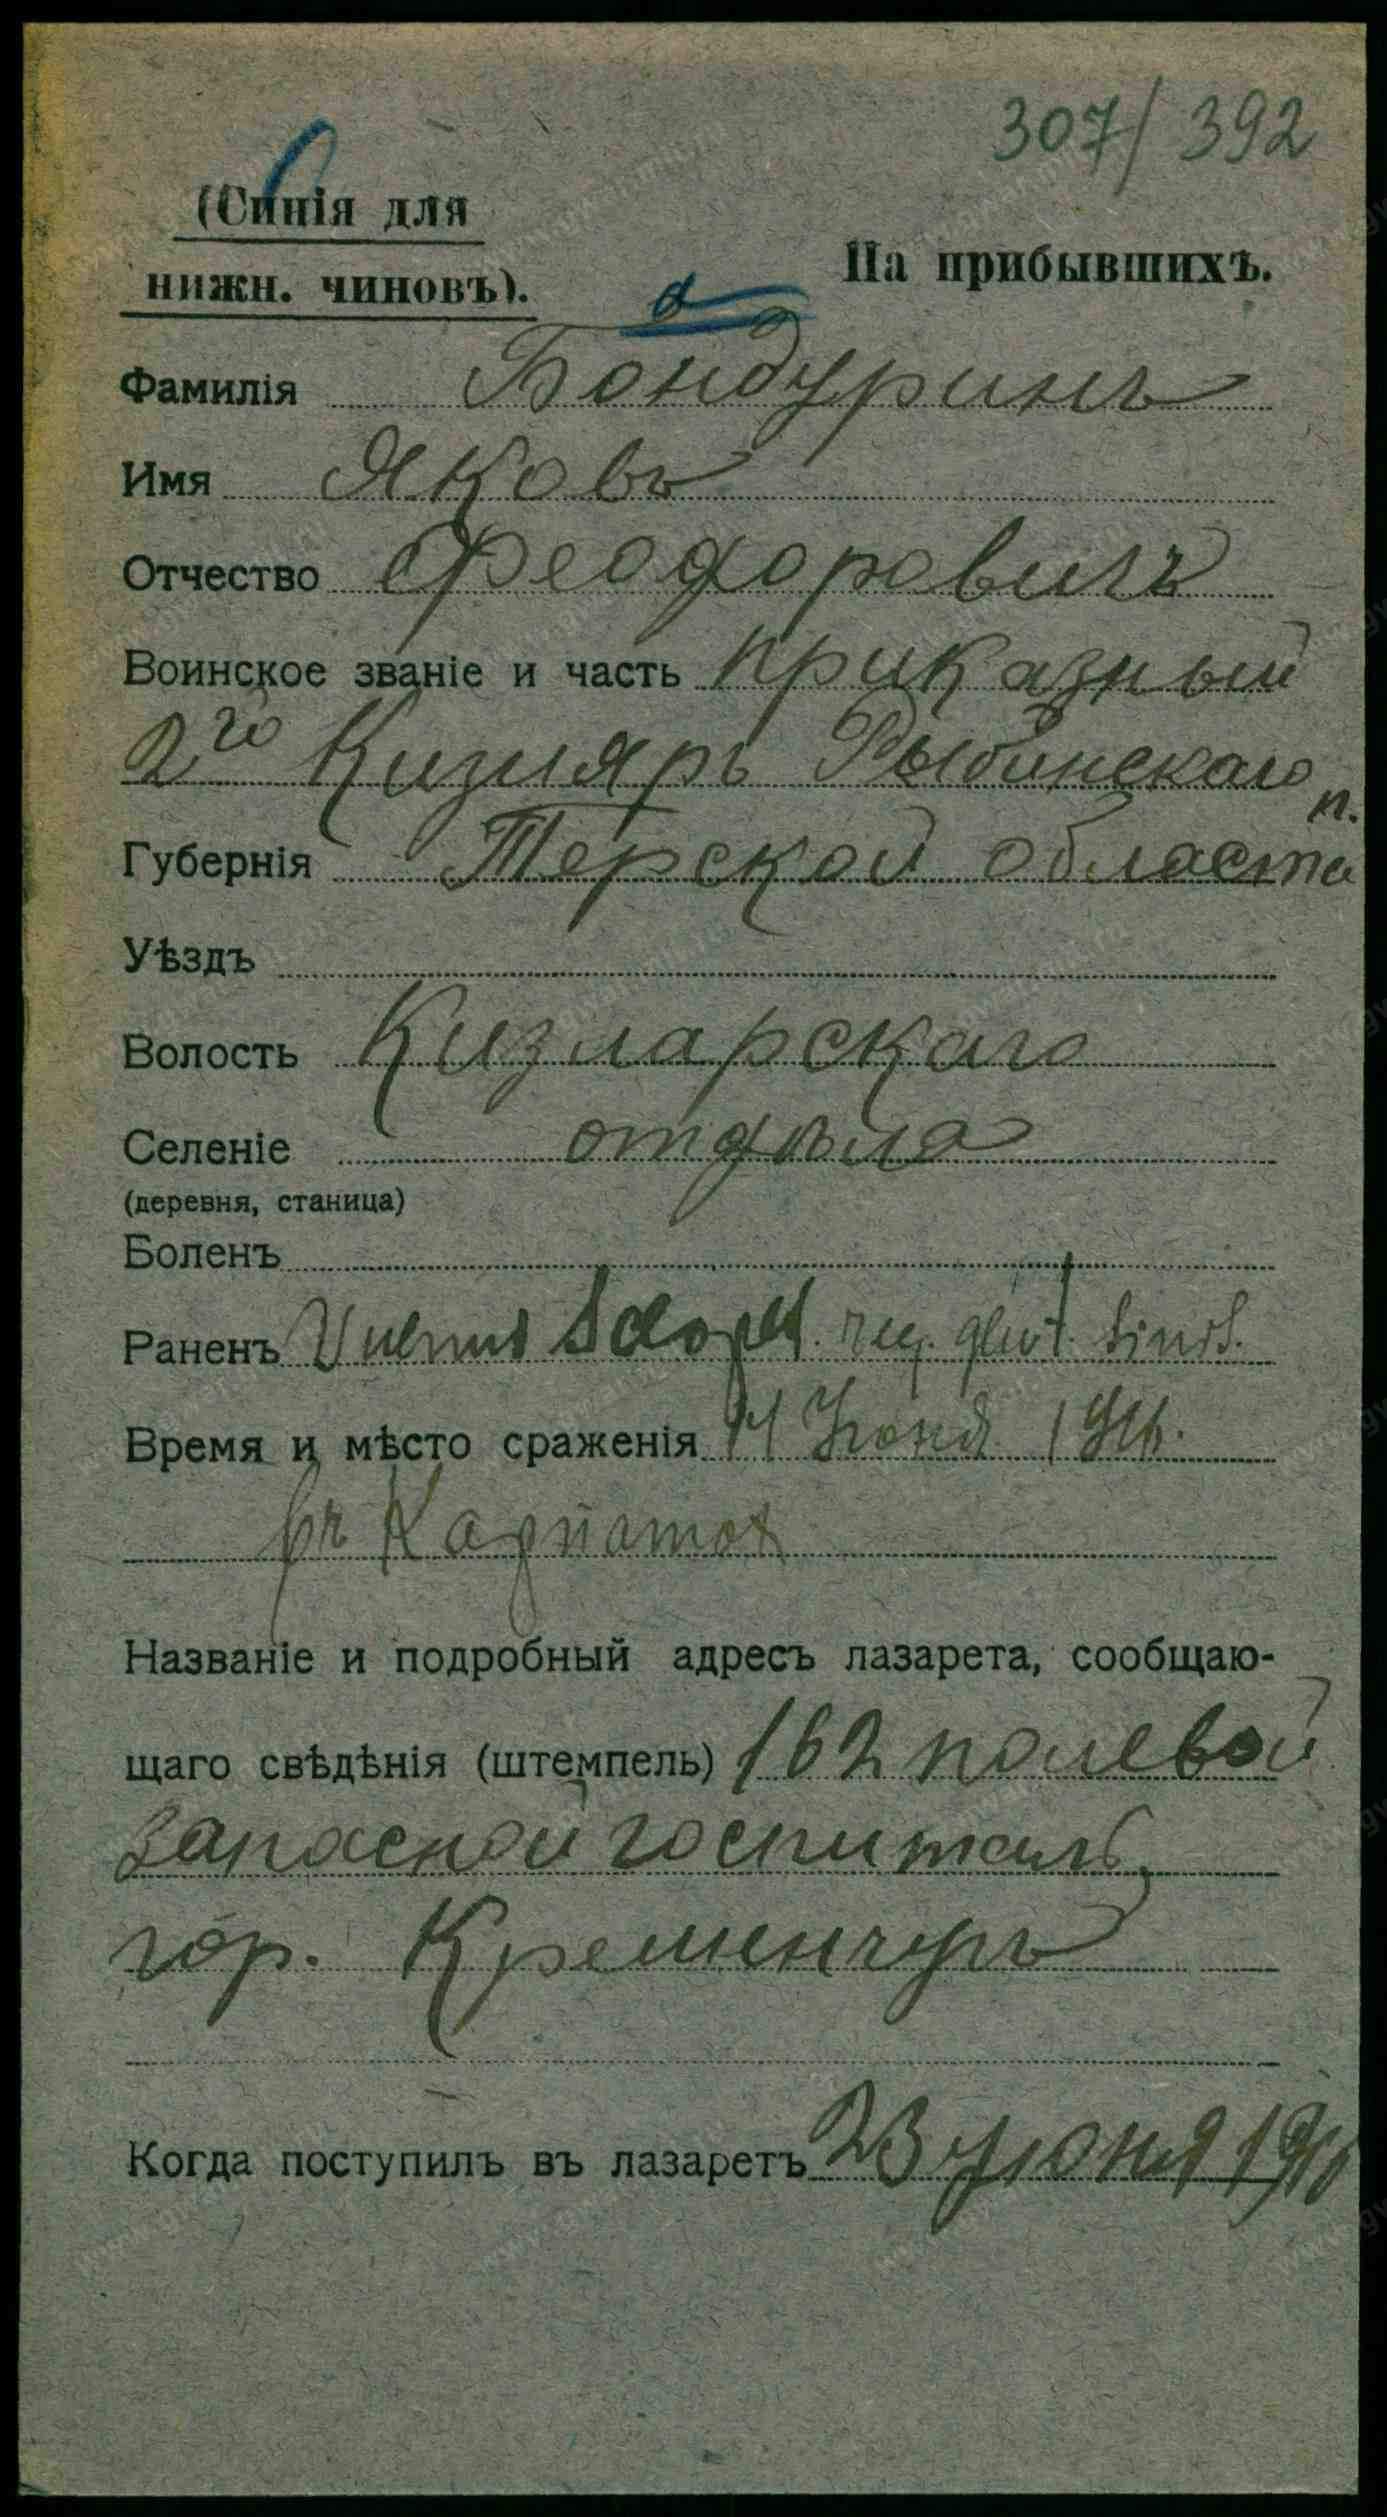 307/392
(Синія для
нижн. чиновъ).
На прибывшихъ.
а
Фамилія Бондуринъ
Имя Яковъ
Отчество Феодоровичъ
Воинское званіе и часть приказный
2го Кизляръ Рыбинскаго
п.
Губернія Терской области
Уѣздъ
Волость Кизларскаго
Селеніе отдѣла
(деревня, станица)
Боленъ
Раненъ Vulnus Sclopet. reg. glut. sinis.
Время и мѣсто сраженія Іюня 1916.
въ Карпатах
Названіе и подробный адресъ лазарета, сообщаю-
щаго свѣдѣнія (штемпель) 162 полевой
запасной госпиталь,
гор. Кременчугъ
Когда поступилъ въ лазаретъ 23 іюня 1916